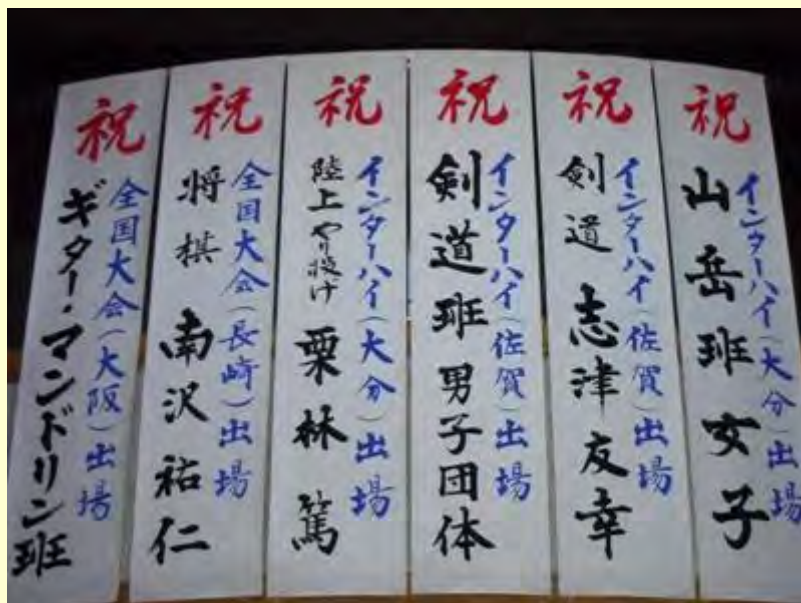 祝
インターハイ(大分)出場
山岳班女子
祝
インターハイ(佐賀)出場
剣道 志津友幸
祝
インターハイ(佐賀)出場
剣道班男子団体
祝
インターハイ(大分)出場
陸上やり投げ 栗林篤
祝
全国大会(長崎)出場
将棋 南沢祐仁
祝
全国大会(大阪)出場
ギター・マンドリン班